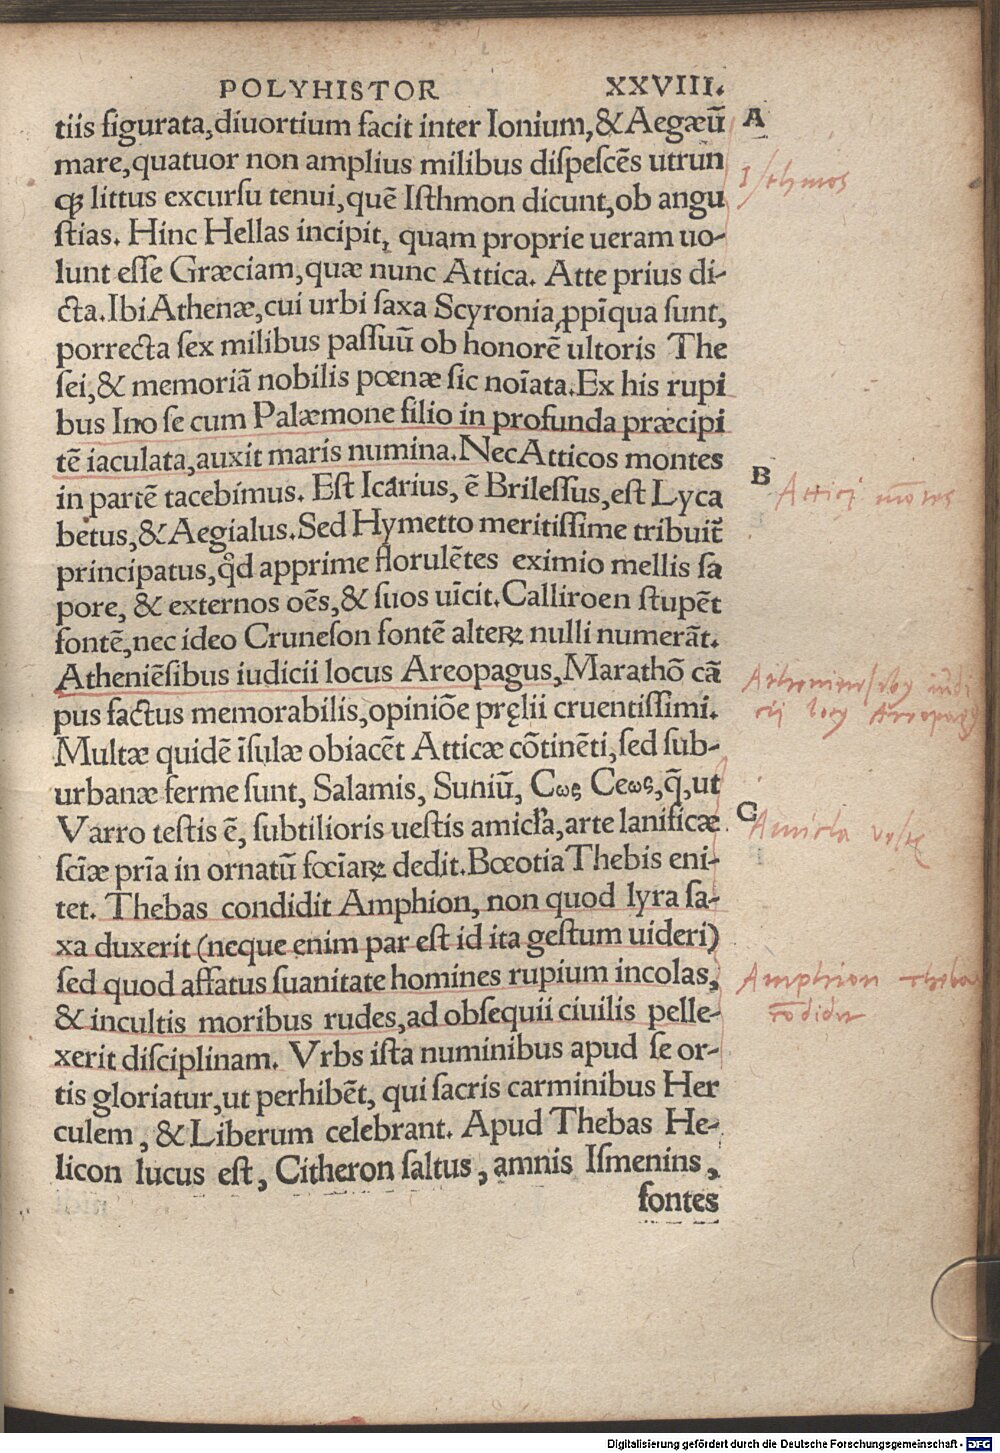 POLYHISTOR XXVIII.
tiis figurata,diuortium facit inter Ionium,&Aegæũ
A
mare,quatuor non amplius milibus dispescẽs utrun
Isthmos
qꝫ littus excursu tenui,quẽ Isthmon dicunt,ob angu
stias. Hinc Hellas incipit, quam proprie ueram uo-
lunt esse Græciam,quæ nunc Attica. Atte prius di-
cta.Ibi Athenæ,cui urbi saxa Scyronia ꝓpĩqua sunt,
porrecta sex milibus passuũ ob honorẽ ultoris The
sei,& memoriã nobilis pœnæ sic noĩata.Ex his rupi
bus Ino se cum Palæmone filio in profunda præcipi
tẽ iaculata,auxit maris numina.Nec Atticos montes
B
in partẽ tacebimus. Est Icarius, ẽ Brilessus,est Lyca
Attici mõtes
betus,& Aegialus.Sed Hymetto meritissime tribuit̃
principatus,qd̊ apprime florulẽtes eximio mellis sa
pore, & externos oẽs,& suos uĩcit.Calliroen stupẽt
fontẽ,nec ideo Cruneson fontẽ alteꝝ nulli numerãt.
Atheniẽsibus iudicii locus Areopagus,Marathõ cã
Atheniensibꝯ iudi
cii locꝯ Areopagꝯ
pus factus memorabilis,opiniõe pręlii cruentissimi.
Multæ quidẽ ĩsulæ obiacẽt Atticæ cõtinẽti,sed sub-
urbanæ ferme sunt, Salamis, Suniũ, Cως Ceως,q̃,ut
C
Varro testis ẽ, subtilioris uestis amicła,arte lanificæ
Amicla vestẽ
sciæ pria in ornatũ fœĩaꝝ dedit.Bœotia Thebis eni-
tet. Thebas condidit Amphion, non quod lyra sa-
xa duxerit (neque enim par est id ita gestum uideri)
sed quod affatus suanitate homines rupium incolas,
Amphion Theba
cõdidit
& incultis moribus rudes,ad obsequii ciuilis pelle-
xerit disciplinam. Vrbs ista numinibus apud se or-
tis gloriatur,ut perhibẽt, qui sacris carminibus Her
culem, & Liberum celebrant. Apud Thebas He-
licon lucus est, Citheron saltus, amnis Ismenins,
fontes
Digitalisierung gefördert durch die Deutsche Forschungsgemeinschaft - DFG